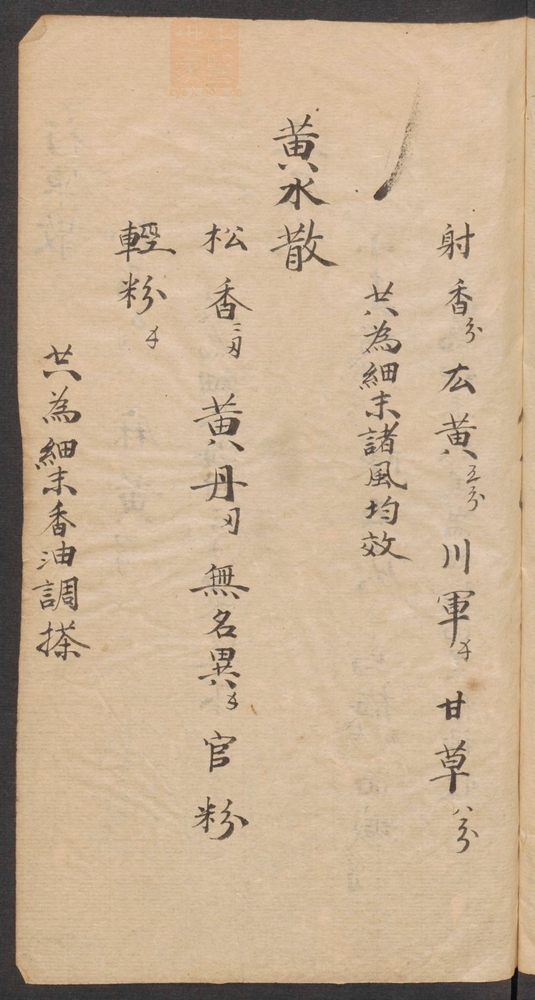 射香分 広黄五分 川軍才 甘草八分
共為細末諸風均效
黄水散
松香二刃 黄丹刃 無名異才 官粉
輕粉才
共為細末香油調搽